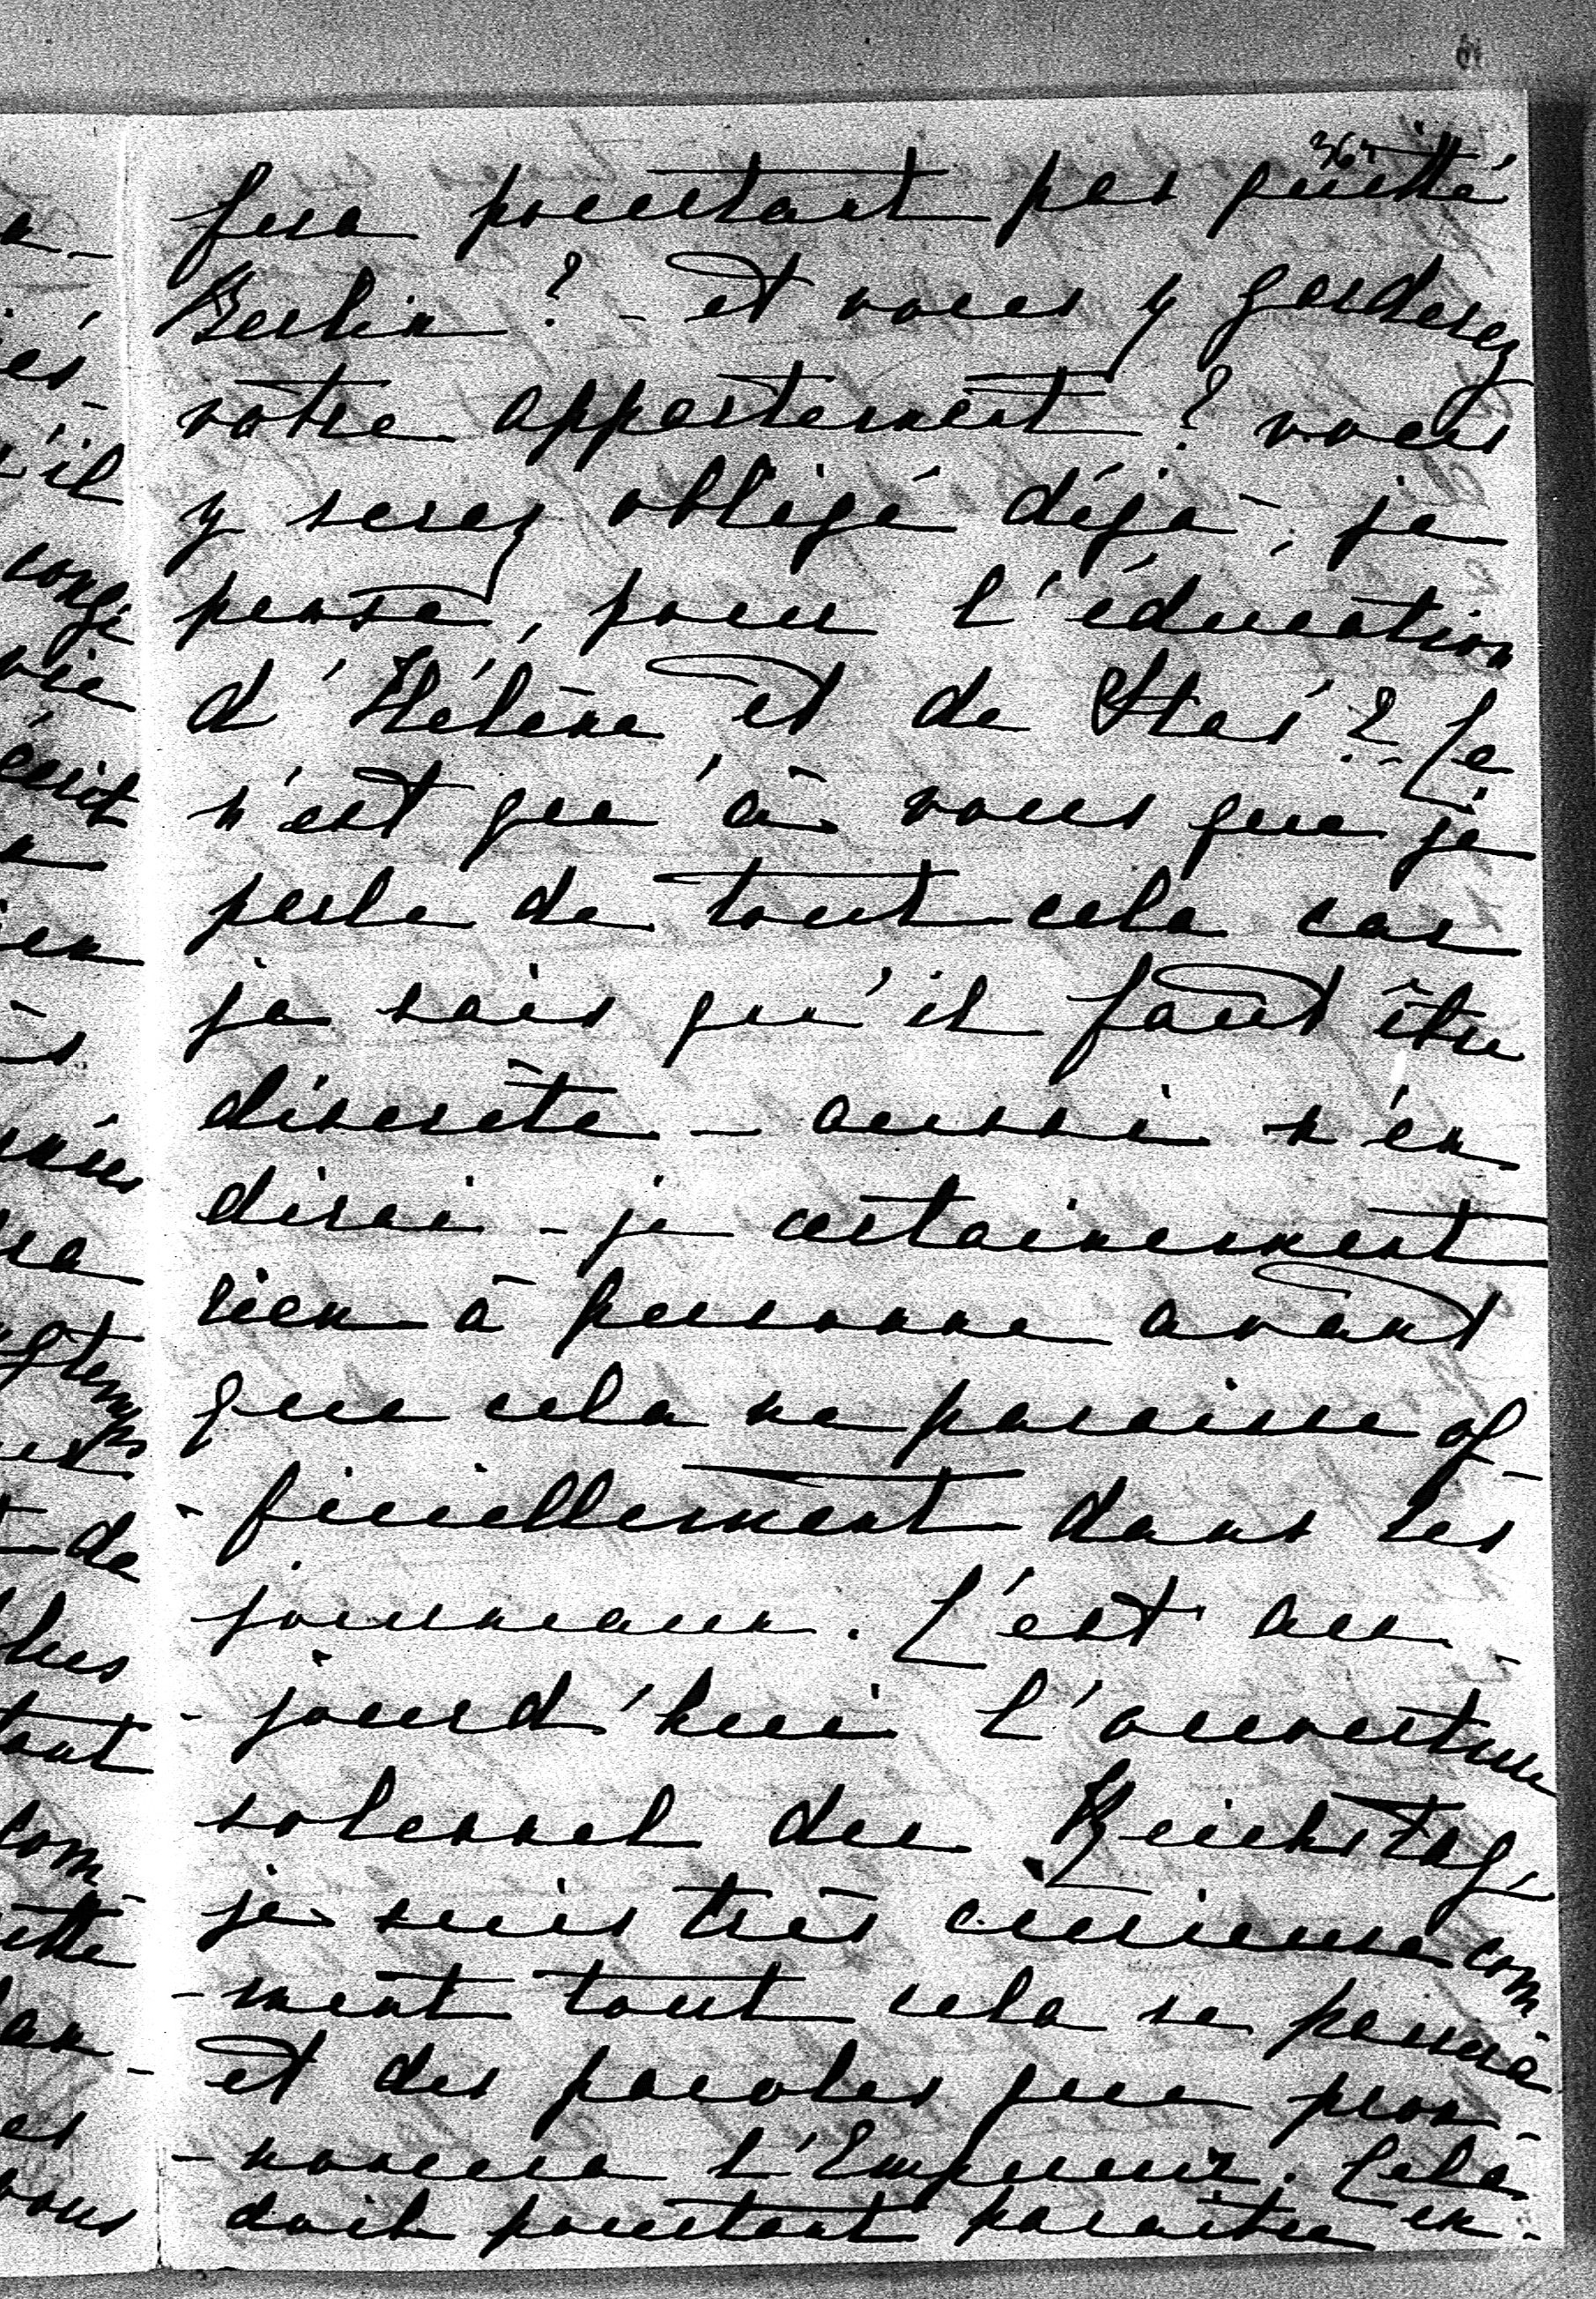 36
fera pourtant pas quitté
Berlin ? – et vous y garderez
votre appartement ? vous
y serez obligé déjà, je
pense, pour l'éducation
d'Hélène et de Stas ? – Ce
n'est qu'à vous que je
parle de tout cela car
je sais qu'il faut être
discrète – aussi n'en
dirai-je certainement
rien à personne avant
que cela ne paraisse of-
-ficiellement dans les
journeaux. C'est au-
-jourd'hui l'ouverture
solennel du Reichstag,
je suis très curieuse com
-ment tout cela se passera
et des paroles que pron-
-noncera l'Empereur. Cela
doit pourtant paraître en-